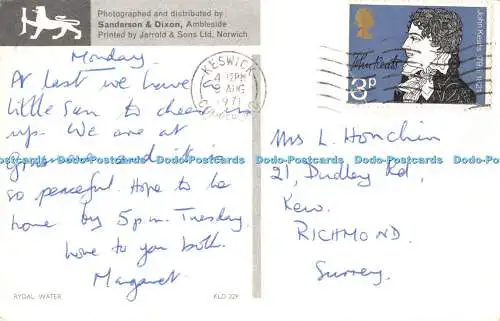 Photographed and distributed by
Sanderson & Dixon, Ambleside
Printed by Jarrold & Sons Ltd, Norwich
Monday
At last we have a
little sun to cheer us
up. We are at
and it is
so peaceful. Hope to be
home by 5pm. Tuesday.
Love to you both.
Margaret
RYDAL WATER
KLD 22F
KESWICK
PM
9 AUG
1971
John Keats 1795-1821
John Keats
3p
Mrs L. Honchin
21, Dudley Rd,
Kew.
RICHMOND.
Surrey.
Dodo-Postcards Dodo-Postcards Dodo-Postcards Dodo-Postcards Dodo-Postcards Dodo-Postcards